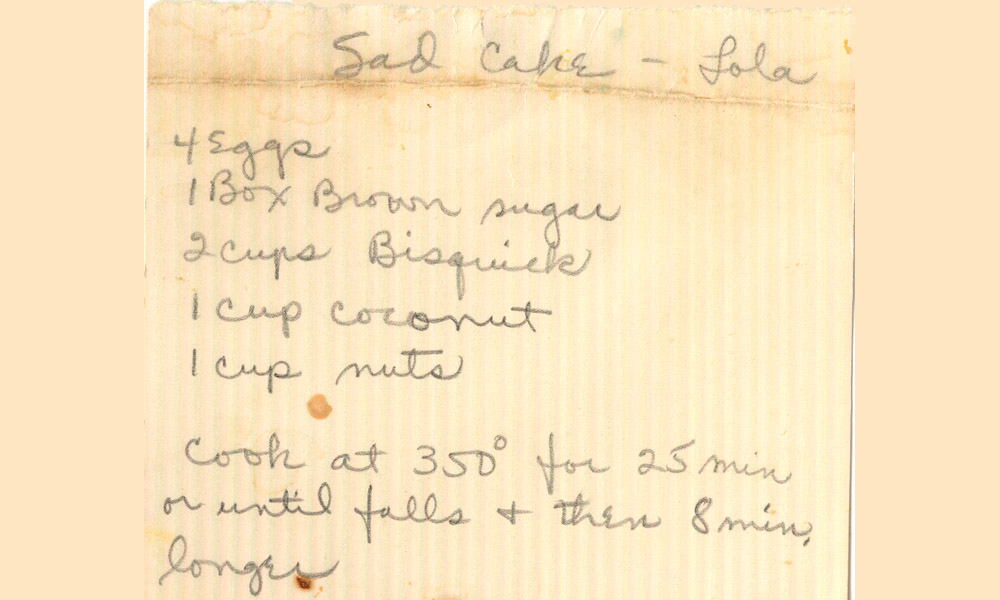 Sad Cake - Lola
4 Eggs
1 Box Brown sugar
2 cups Bisquick
1 cup coconut
1 cup nuts
Cook at 350° for 25 min
or until falls + then 8 min.
longer